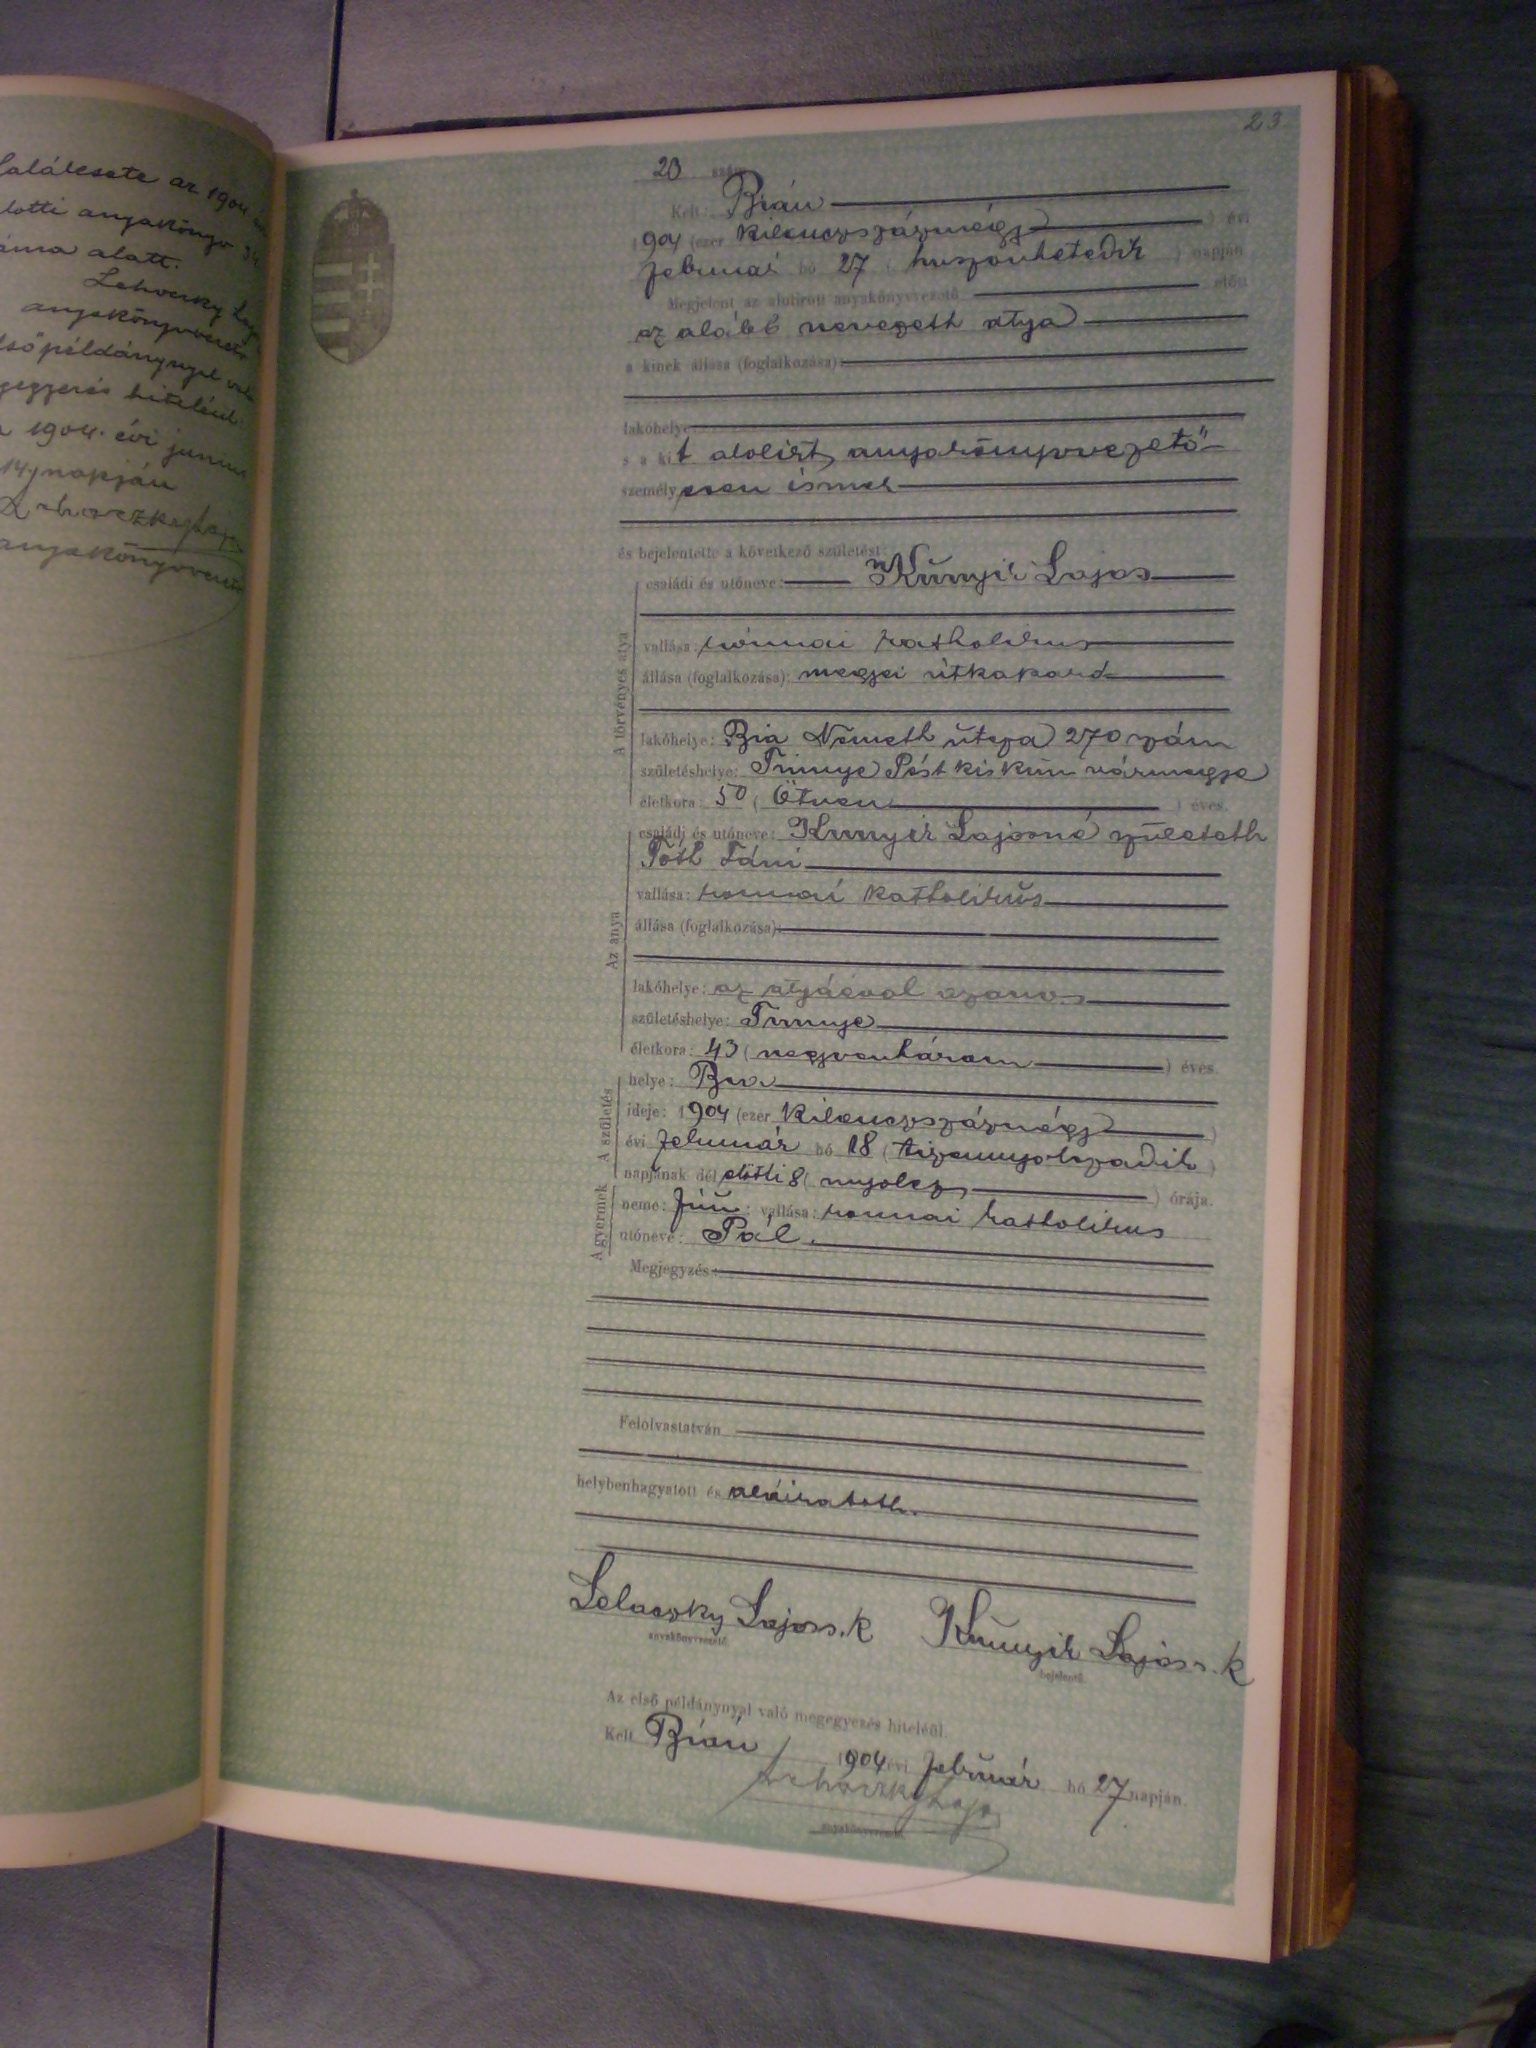 halálesete az 1904
anyakönyv
alatt.
Lehoczky
anyakönyvvezető
hiteléül.
1904. évi junius
14 napján
anyakönyvvezető
23
20 szám
Kelt: Bián
1904 (ezer kilenczszáznégy) évi
február hó 27 (huszonhetedik) napján
Megjelent az alulirott anyakönyvvezető előtt
az alább nevezett atya
a kinek állása (foglalkozása):
lakóhelye
s a kit alolirt anyakönyvvezető
személyesen ismer
és bejelentette a következő születést:
A törvényes atya
családi és utóneve: Kunyik Lajos
vallása: római katholikus
állása (foglalkozása): megyei útkaparó
lakóhelye: Bia Németh utcza 270 szám
születéshelye: Tinnye Pest kiskun vármegye
életkora: 50 (Ötven) éves.
Az anya
családi és utóneve: Kunyik Lajosné született
Tóth Fáni
vallása: romai katholikus
állása (foglalkozása):
lakóhelye: az atyáéval azonos
születéshelye: Tinnye
életkora: 43 (negyvenhárom) éves.
A születés
helye: Bia
ideje: 1904 (ezer kilenczszáznégy)
évi február hó 18 (tizennyolczadik)
napjának dél előtti 8 (nyolcz) órája.
A gyermek
neme: fiú; vallása: romai katholikus
utóneve: Pál.
Megjegyzés:
Felolvastatván
helybenhagyatott és aláiratott.
Lehoczky Lajos s. k
anyakönyvvezető
Kunyik Lajos s. k
bejelentő.
Az első példánynyal való megegyezés hiteléül
Kelt Bián 1904 évi február hó 27 napján.
Lehoczky Lajos
anyakönyvvezető